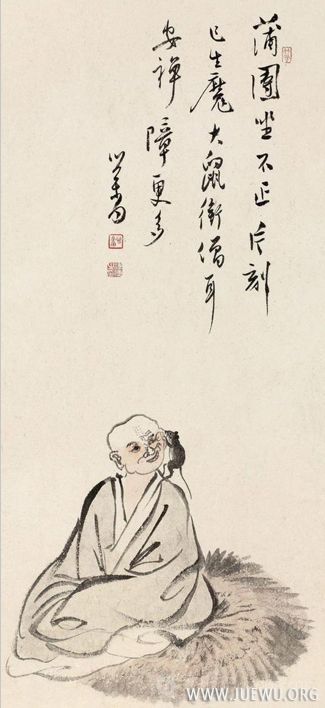 蒲團坐不正片刻
已生魔大鼠銜僧耳
安禪障更多
心畬
WWW.JUEWU.ORG